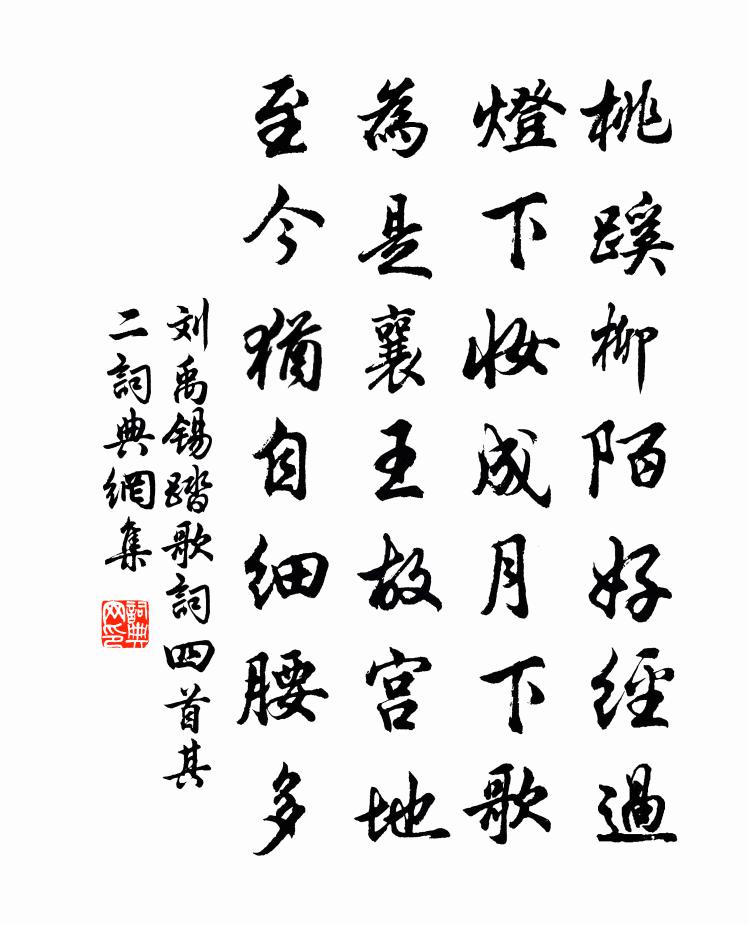 桃蹊柳陌好經過
燈下妝成月下歌
為是襄王故宮地
至今猶自細腰多
刘禹锡踏歌詞四首其
二詞典網集
詞典网印